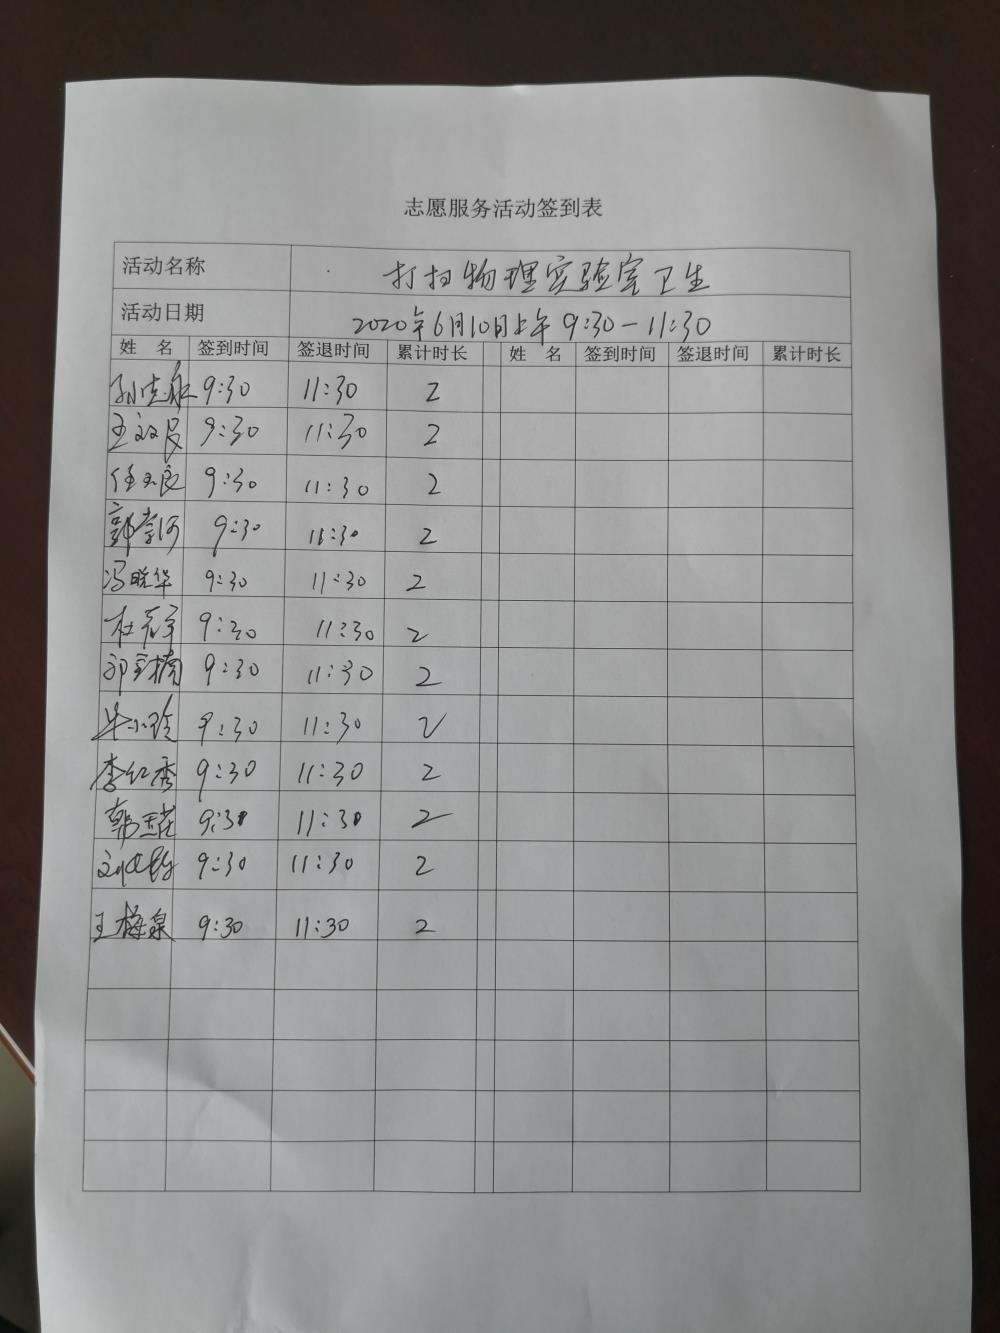 志愿服务活动签到表
活动名称 打扫物理实验室卫生
活动日期 2020年6月10日上午 9:30-11:30
姓 名 签到时间 签退时间 累计时长 姓 名 签到时间 签退时间 累计时长
9:30 11:30 2
9:30 11:30 2
9:30 11:30 2
郭崇河 9:30 11:30 2
冯晓华 9:30 11:30 2
9:30 11:30 2
9:30 11:30 2
牛小玲 9:30 11:30 2
李红秀 9:30 11:30 2
9:30 11:30 2
9:30 11:30 2
王梅泉 9:30 11:30 2